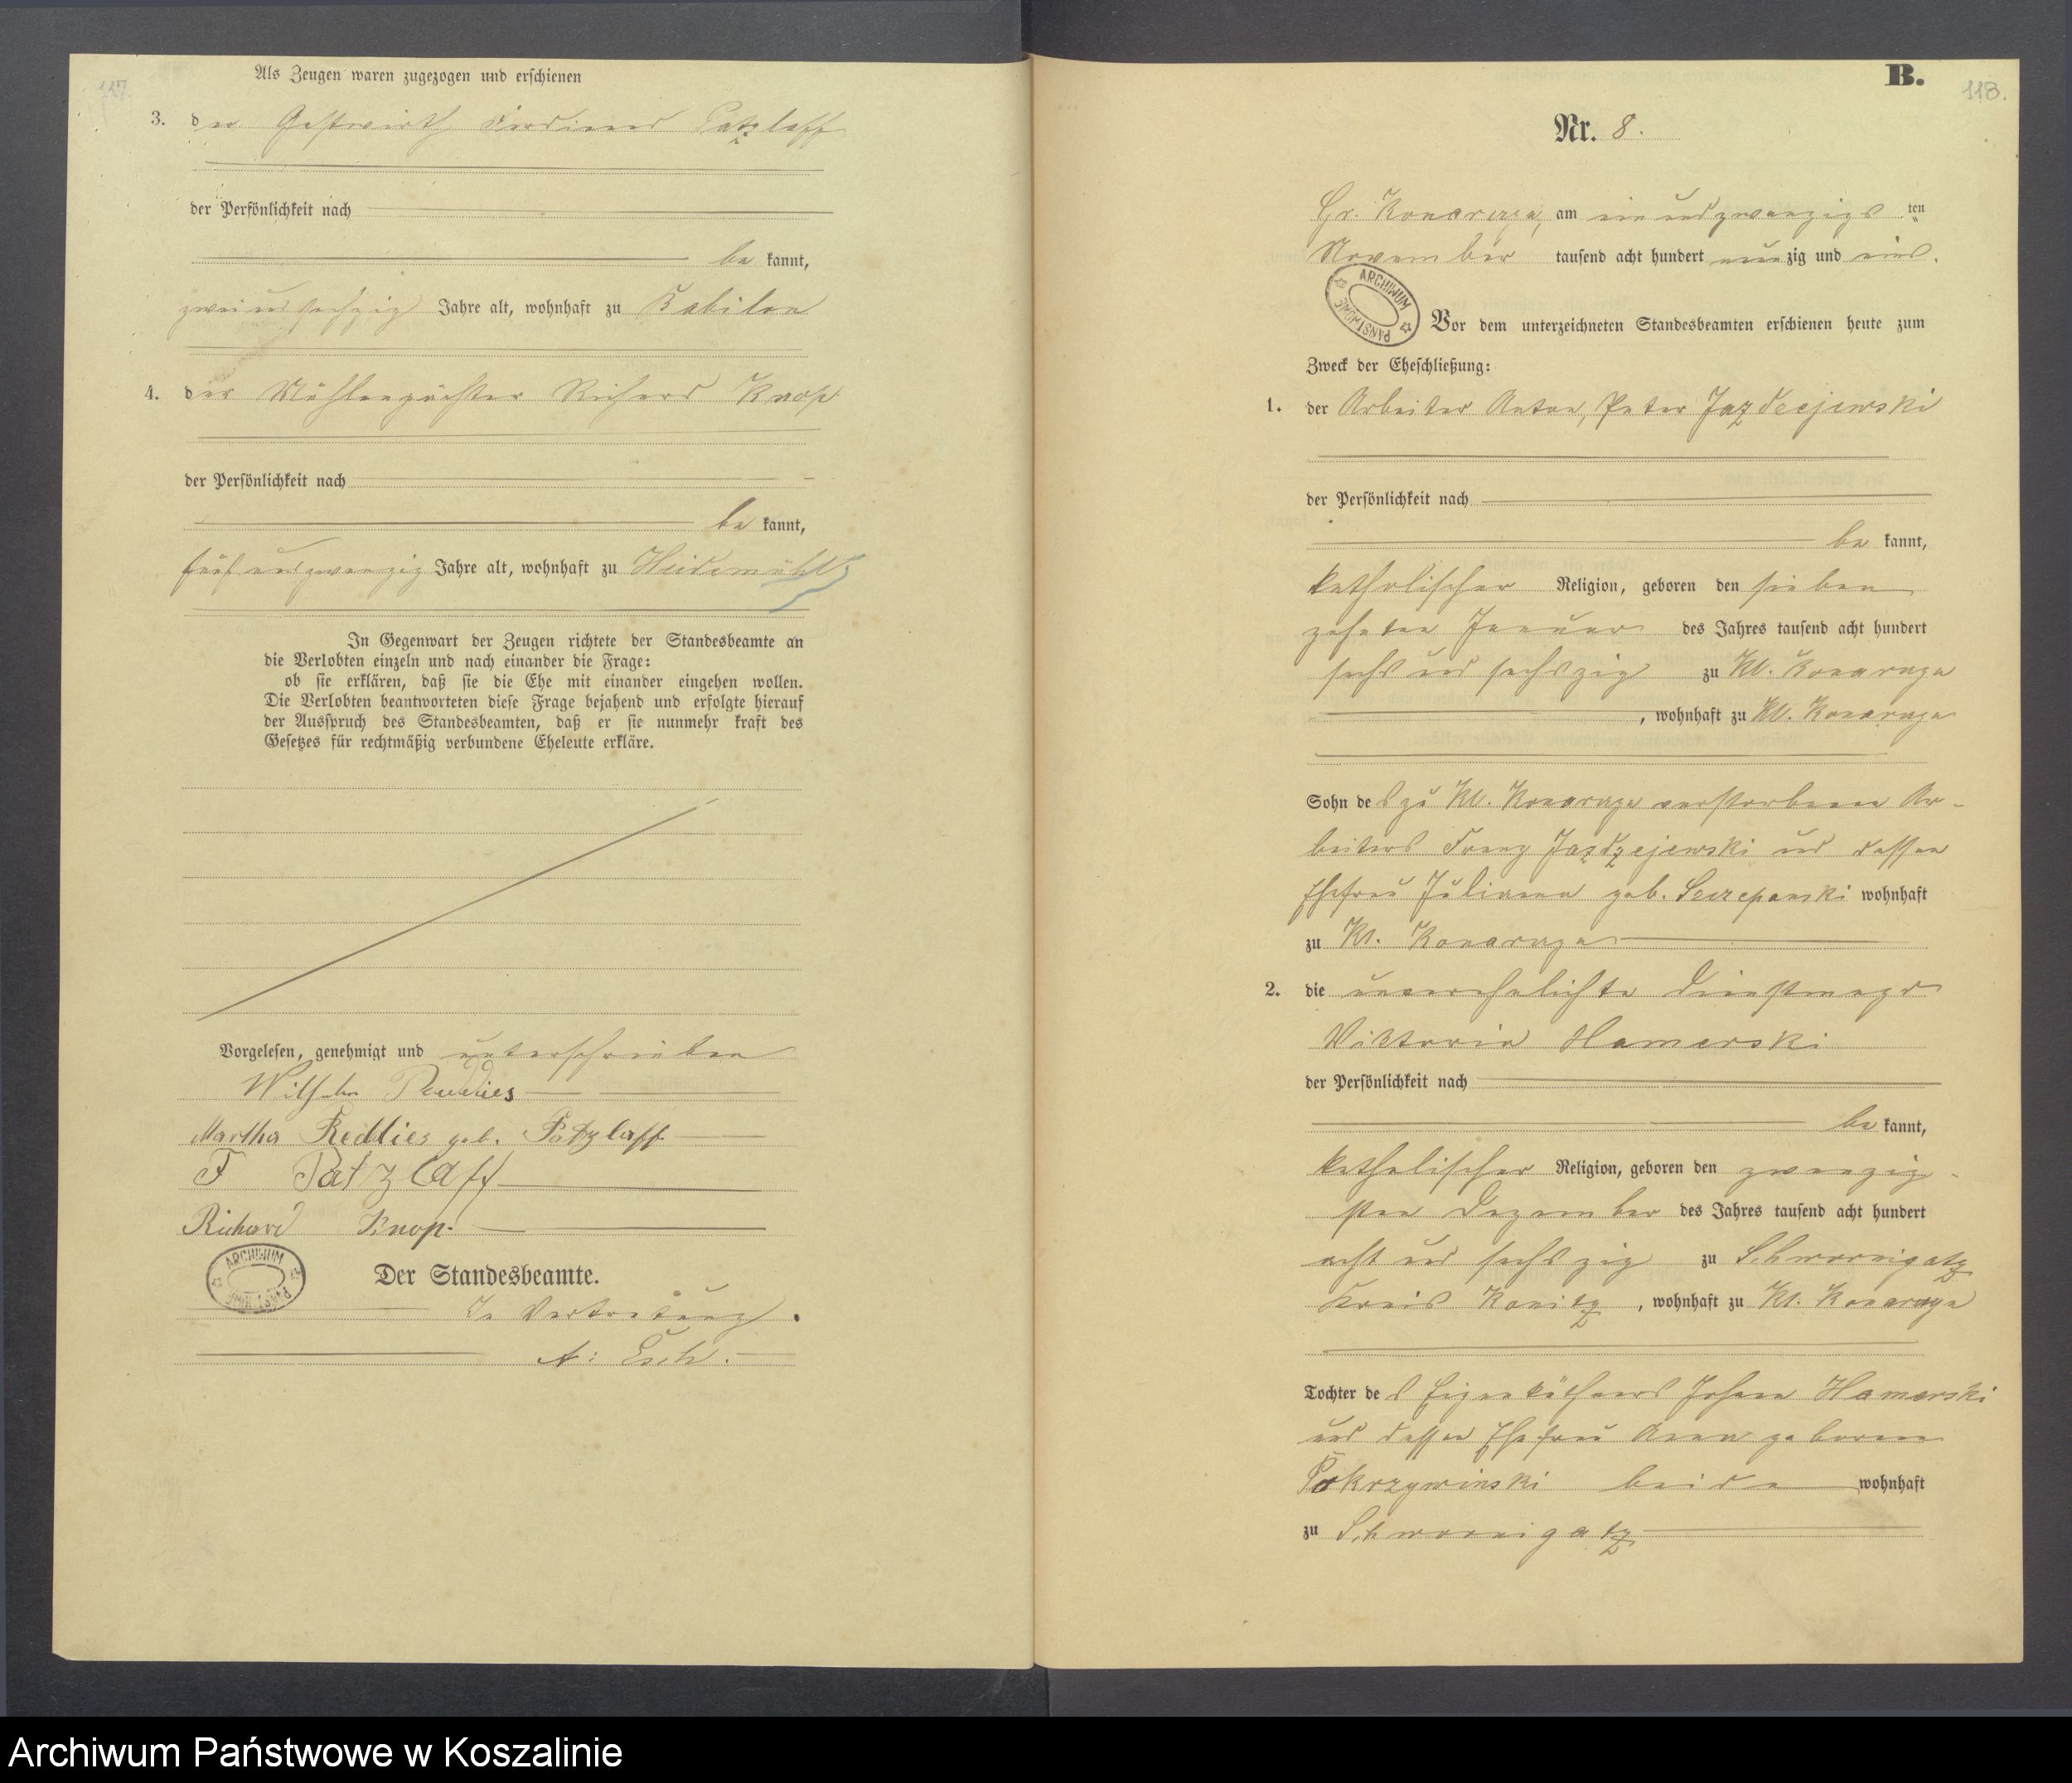 117.
Als Zeugen waren zugezogen und erschienen
3. der Gastwirth Ferdinand Patzlaff
der Persönlichkeit nach
be kannt,
zweiundsechzig Jahre alt, wohnhaft zu Babilon
4. der Mühlenpächter Richard Knop
der Persönlichkeit nach
be kannt,
fünfundzwanzig Jahre alt, wohnhaft zu Heidemühl
In Gegenwart der Zeugen richtete der Standesbeamte an
die Verlobten einzeln und nach einander die Frage:
ob sie erklären, daß sie die Ehe mit einander eingehen wollen.
Die Verlobten beantworteten diese Frage bejahend und erfolgte hierauf
der Ausspruch des Standesbeamten, daß er sie nunmehr kraft des
Gesetzes für rechtmäßig verbundene Eheleute erkläre.
Vorgelesen, genehmigt und unterschrieben
Wilhelm
Martha Reddies geb. Patzlaff
F Patzlaff
Richard Knop.
ARCHIWUM PAŃSTWOWE
Der Standesbeamte.
In Vertretung.
A: Esch.
B.
118.
Nr. 8.
Gr. Konarczyn, am einundzwanzigs ten
November tausend acht hundert neunzig und eins.
ARCHIWUM PAŃSTWOWE
Vor dem unterzeichneten Standesbeamten erschienen heute zum
Zweck der Eheschließung:
1. der Arbeiter Anton, Peter Jazdzejewski
der Persönlichkeit nach
be kannt,
katholischer Religion, geboren den sieben
zehnten Januar des Jahres tausend acht hundert
sechs und sechszig zu Kl. Konarczyn
, wohnhaft zu Kl. Konarczyn
Sohn des zu Kl. Konarczyn verstorbenen Ar-
beiters Franz Jazdzejewski und dessen
Ehefrau Juliana geb. Sczepanski wohnhaft
zu Kl. Konarczyn
2. die unverehelichte Dienstmagd
Viktoria Hamerski
der Persönlichkeit nach
be kannt,
katholischer Religion, geboren den zwanzig-
sten Dezember des Jahres tausend acht hundert
acht und sechszig zu Schwornigatz
Kreis Konitz, wohnhaft zu Kl. Konarczyn
Tochter des Eigenkäthners Johann Hamerski
und dessen Ehefrau Anna geborene
Pokrzywinski beide wohnhaft
zu Schwornigatz
Archiwum Państwowe w Koszalinie